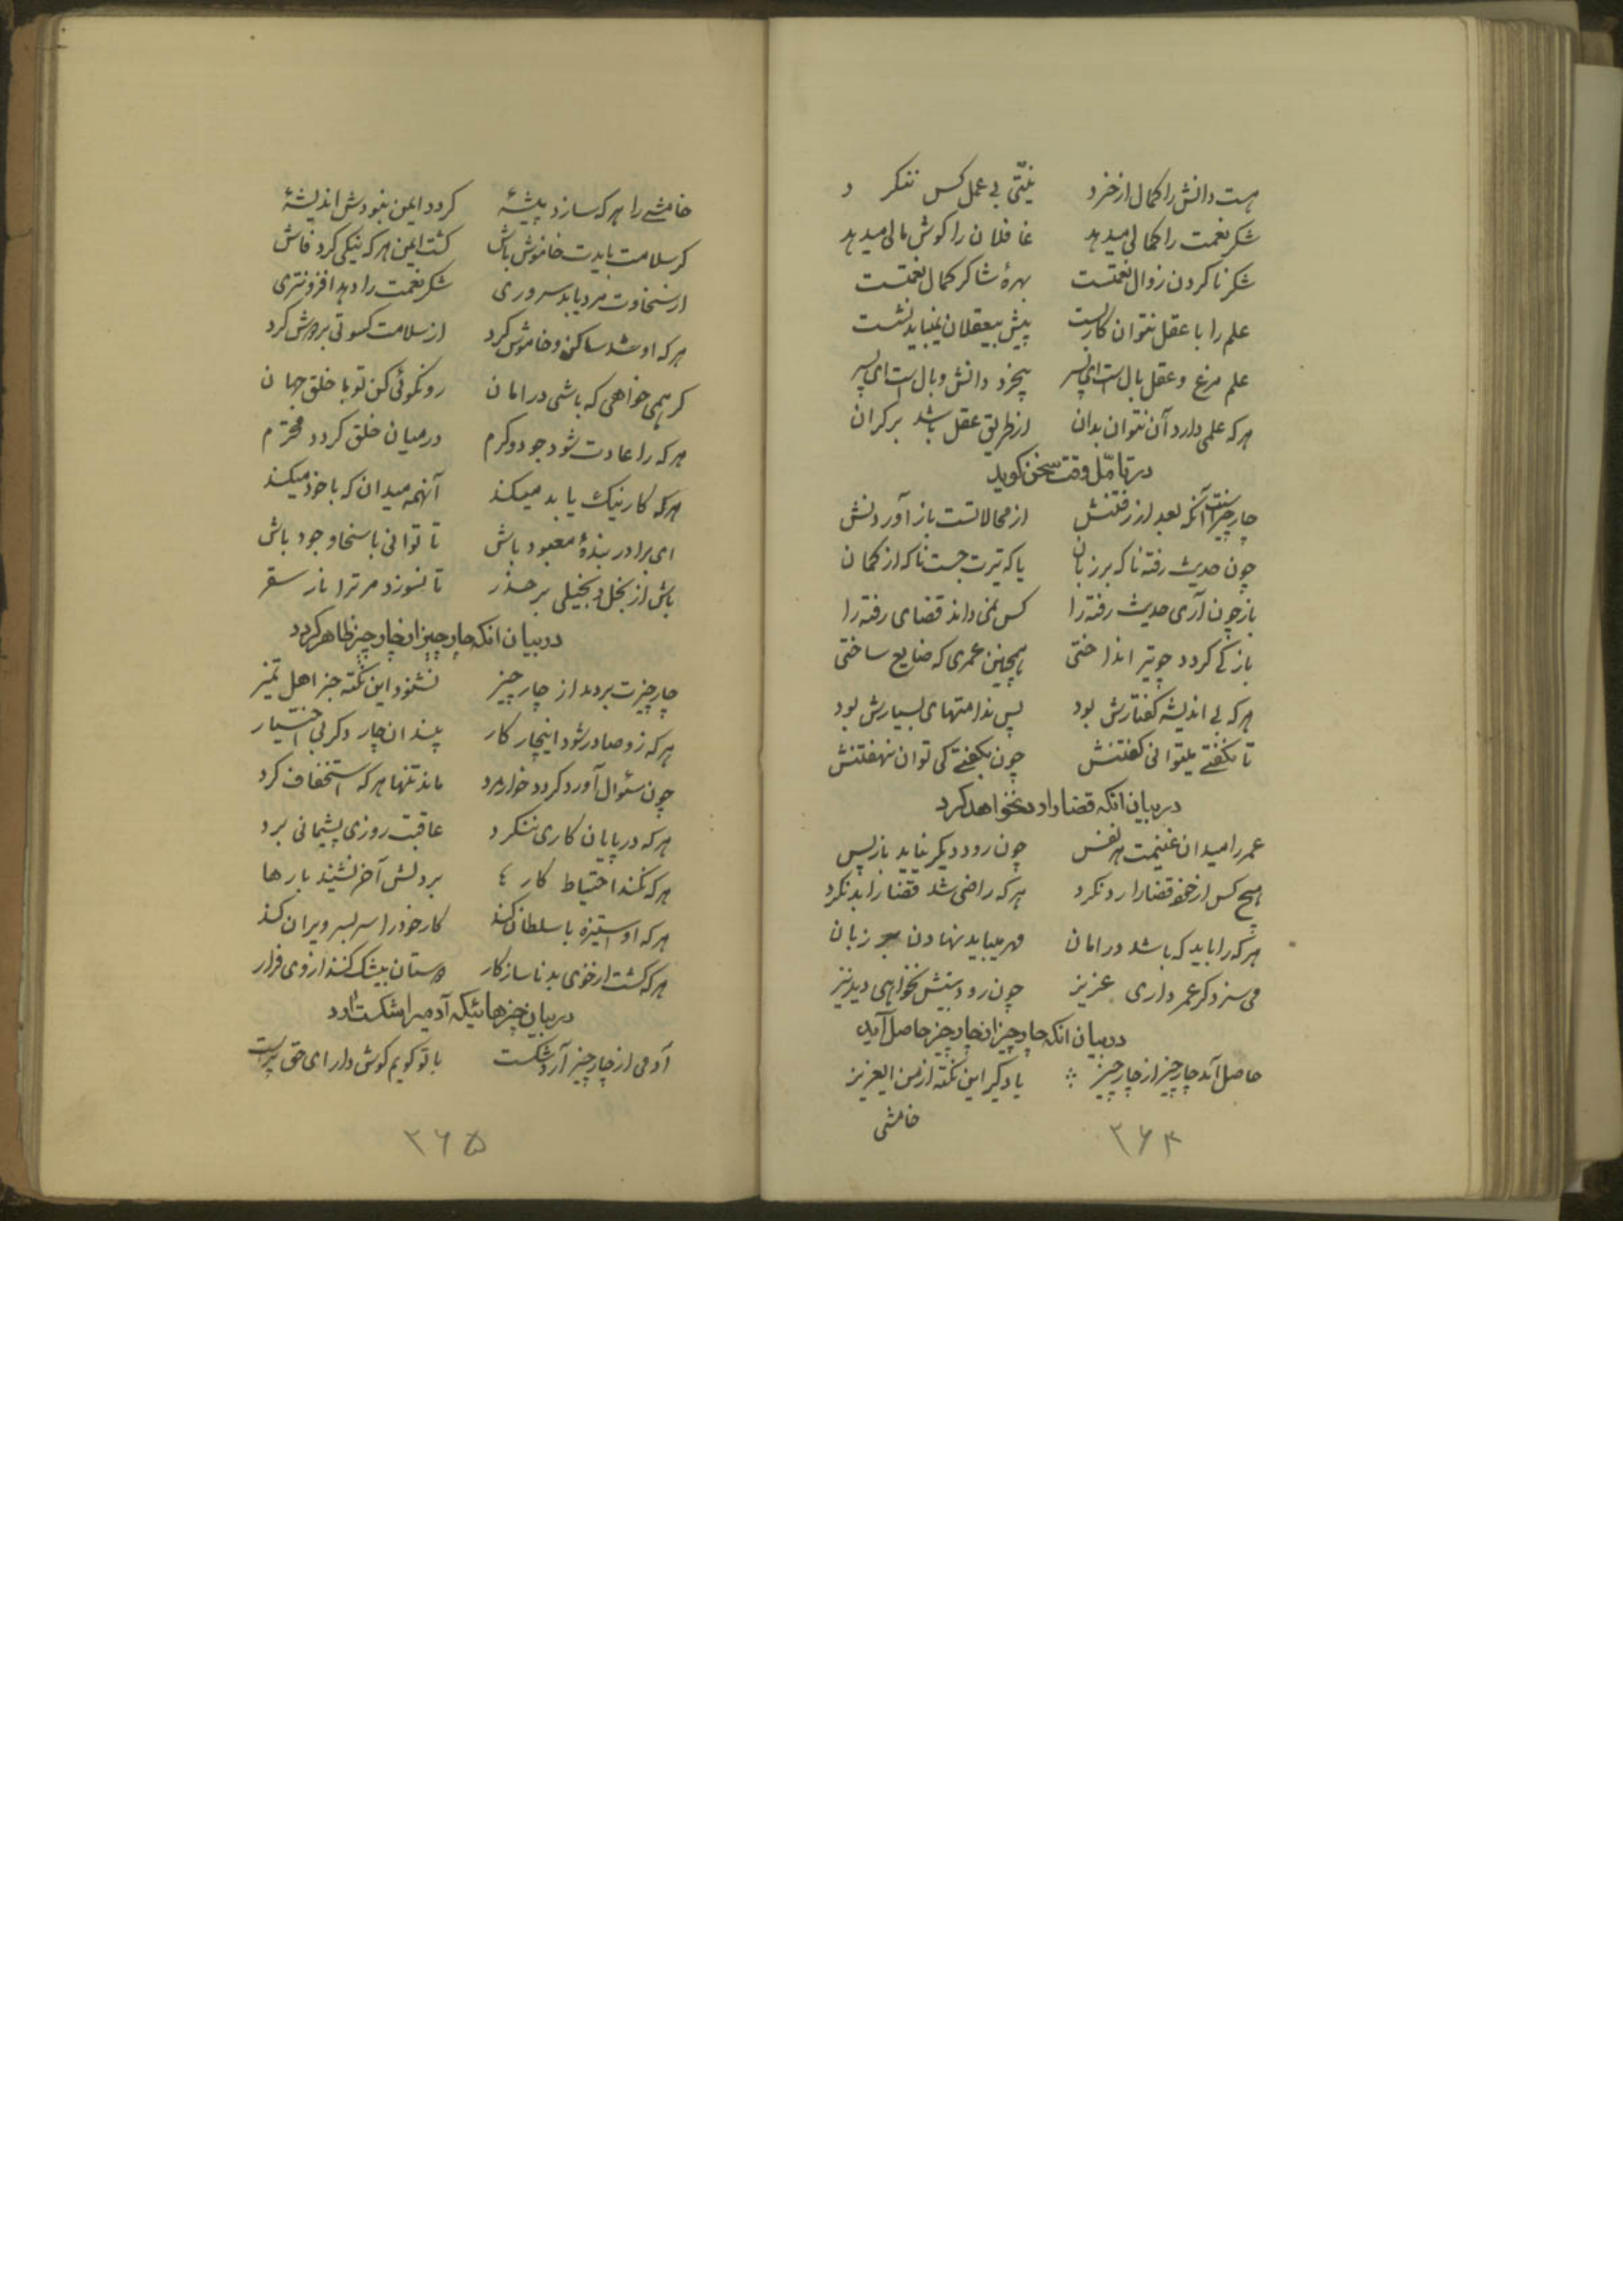 هست دانش را کمال از خرد نیتی بی عمل کس ننکرد
شکر نعمت را کمالی میدهد غافلان را کوش مالی میدهد
شکر ناکردن زوال نعمتست بهرهٔ شاکر کمال نعمتست
علم را با عقل نتوان کاربست پیش بیعقلان نمیباید نشست
علم مرغ و عقل بال است ای پسر بیخرد دانش وبال است ای پسر
هرکه علمی دارد آن نتوان بدان از طریق عقل باشد برکران
در تأمّل وقت سخن کوید
چار چیزست آنکه بعد از رفتنش از محالاتست باز آوردنش
چون حدیث رفته ناکه بر زبان یا که تیرت جست ناکه از کمان
باز چون آری حدیث رفته را کس نمی داند قضای رفته را
باز کی کردد چو تیر انداختی همچنین عمری که ضایع ساختی
هرکه بی اندیشه کفتارش بود پس ندامتهای بسیارش بود
تا نکفتی میتوانی کفتنش چون بکفتی کی توان نهفتنش
در بیان انکه قضا را رد نخواهد کرد
عمر را میدان غنیمت هر نفس چون رود دیکر نیاید باز پس
هیچ کس از خود قضا را رد نکرد هرکه راضی شد قضا را بد نکرد
هرکه را باید که باشد در امان مهر میباید نهادن بر زبان
می سزد کر عمر داری عزیز چون رود پیش نخواهی دید نیز
در بیان انکه چار چیز از چار چیز حاصل آید
حاصل آید چار چیز از چار چیز یاد کیر این نکته از من ایعزیز
خامشی
۳۶۴
خامشی را هرکه سازد پیشهٔ کردد ایمن نبودش اندیشهٔ
کر سلامت بایدت خاموش باش کشت ایمن هرکه نیکی کرد فاش
از سخاوت مرد یابد سروری شکر نعمت را دهد افزونتری
هرکه او شد ساکن و خاموش کرد از سلامت کسوتی بردوش کرد
کر همی خواهی که باشی در امان رو نکوئی کن تو با خلق جهان
هرکه را عادت شود جود و کرم در میان خلق کردد محترم
هرکه کار نیک یا بد میکند آنهمه میدان که با خود میکند
ای برادر بندهٔ معبود باش تا توانی با سخا و جود باش
باش از بخل و بخیلی بر حذر تا نسوزد مر ترا نار سقر
در بیان انکه چار چیز از چار چیز ظاهر کردد
چار چیزت بر دهد از چار چیز نشنود این نکته جز اهل تمیز
هرکه زو صادر شود اینچار کار بیند ان چار دکر بی اختیار
چون سئوال آورد کردد خوار مرد ماند تنها هرکه استخفاف کرد
هرکه در پایان کاری ننکرد عاقبت روزی پشیمانی برد
هرکه نکند احتیاط کار بر دلش آخر نشیند بارها
هرکه او استیزه با سلطان کند کار خود را سر بسر ویران کند
هرکه کشت از خوی بد ناسازکار دوستان بیشک کنند از وی فرار
در بیان چیزهائیکه آدمیرا شکست آرد
آدمی از چار چیز آرد شکست با تو کویم کوش دار ای حق پرست
۳۶۵